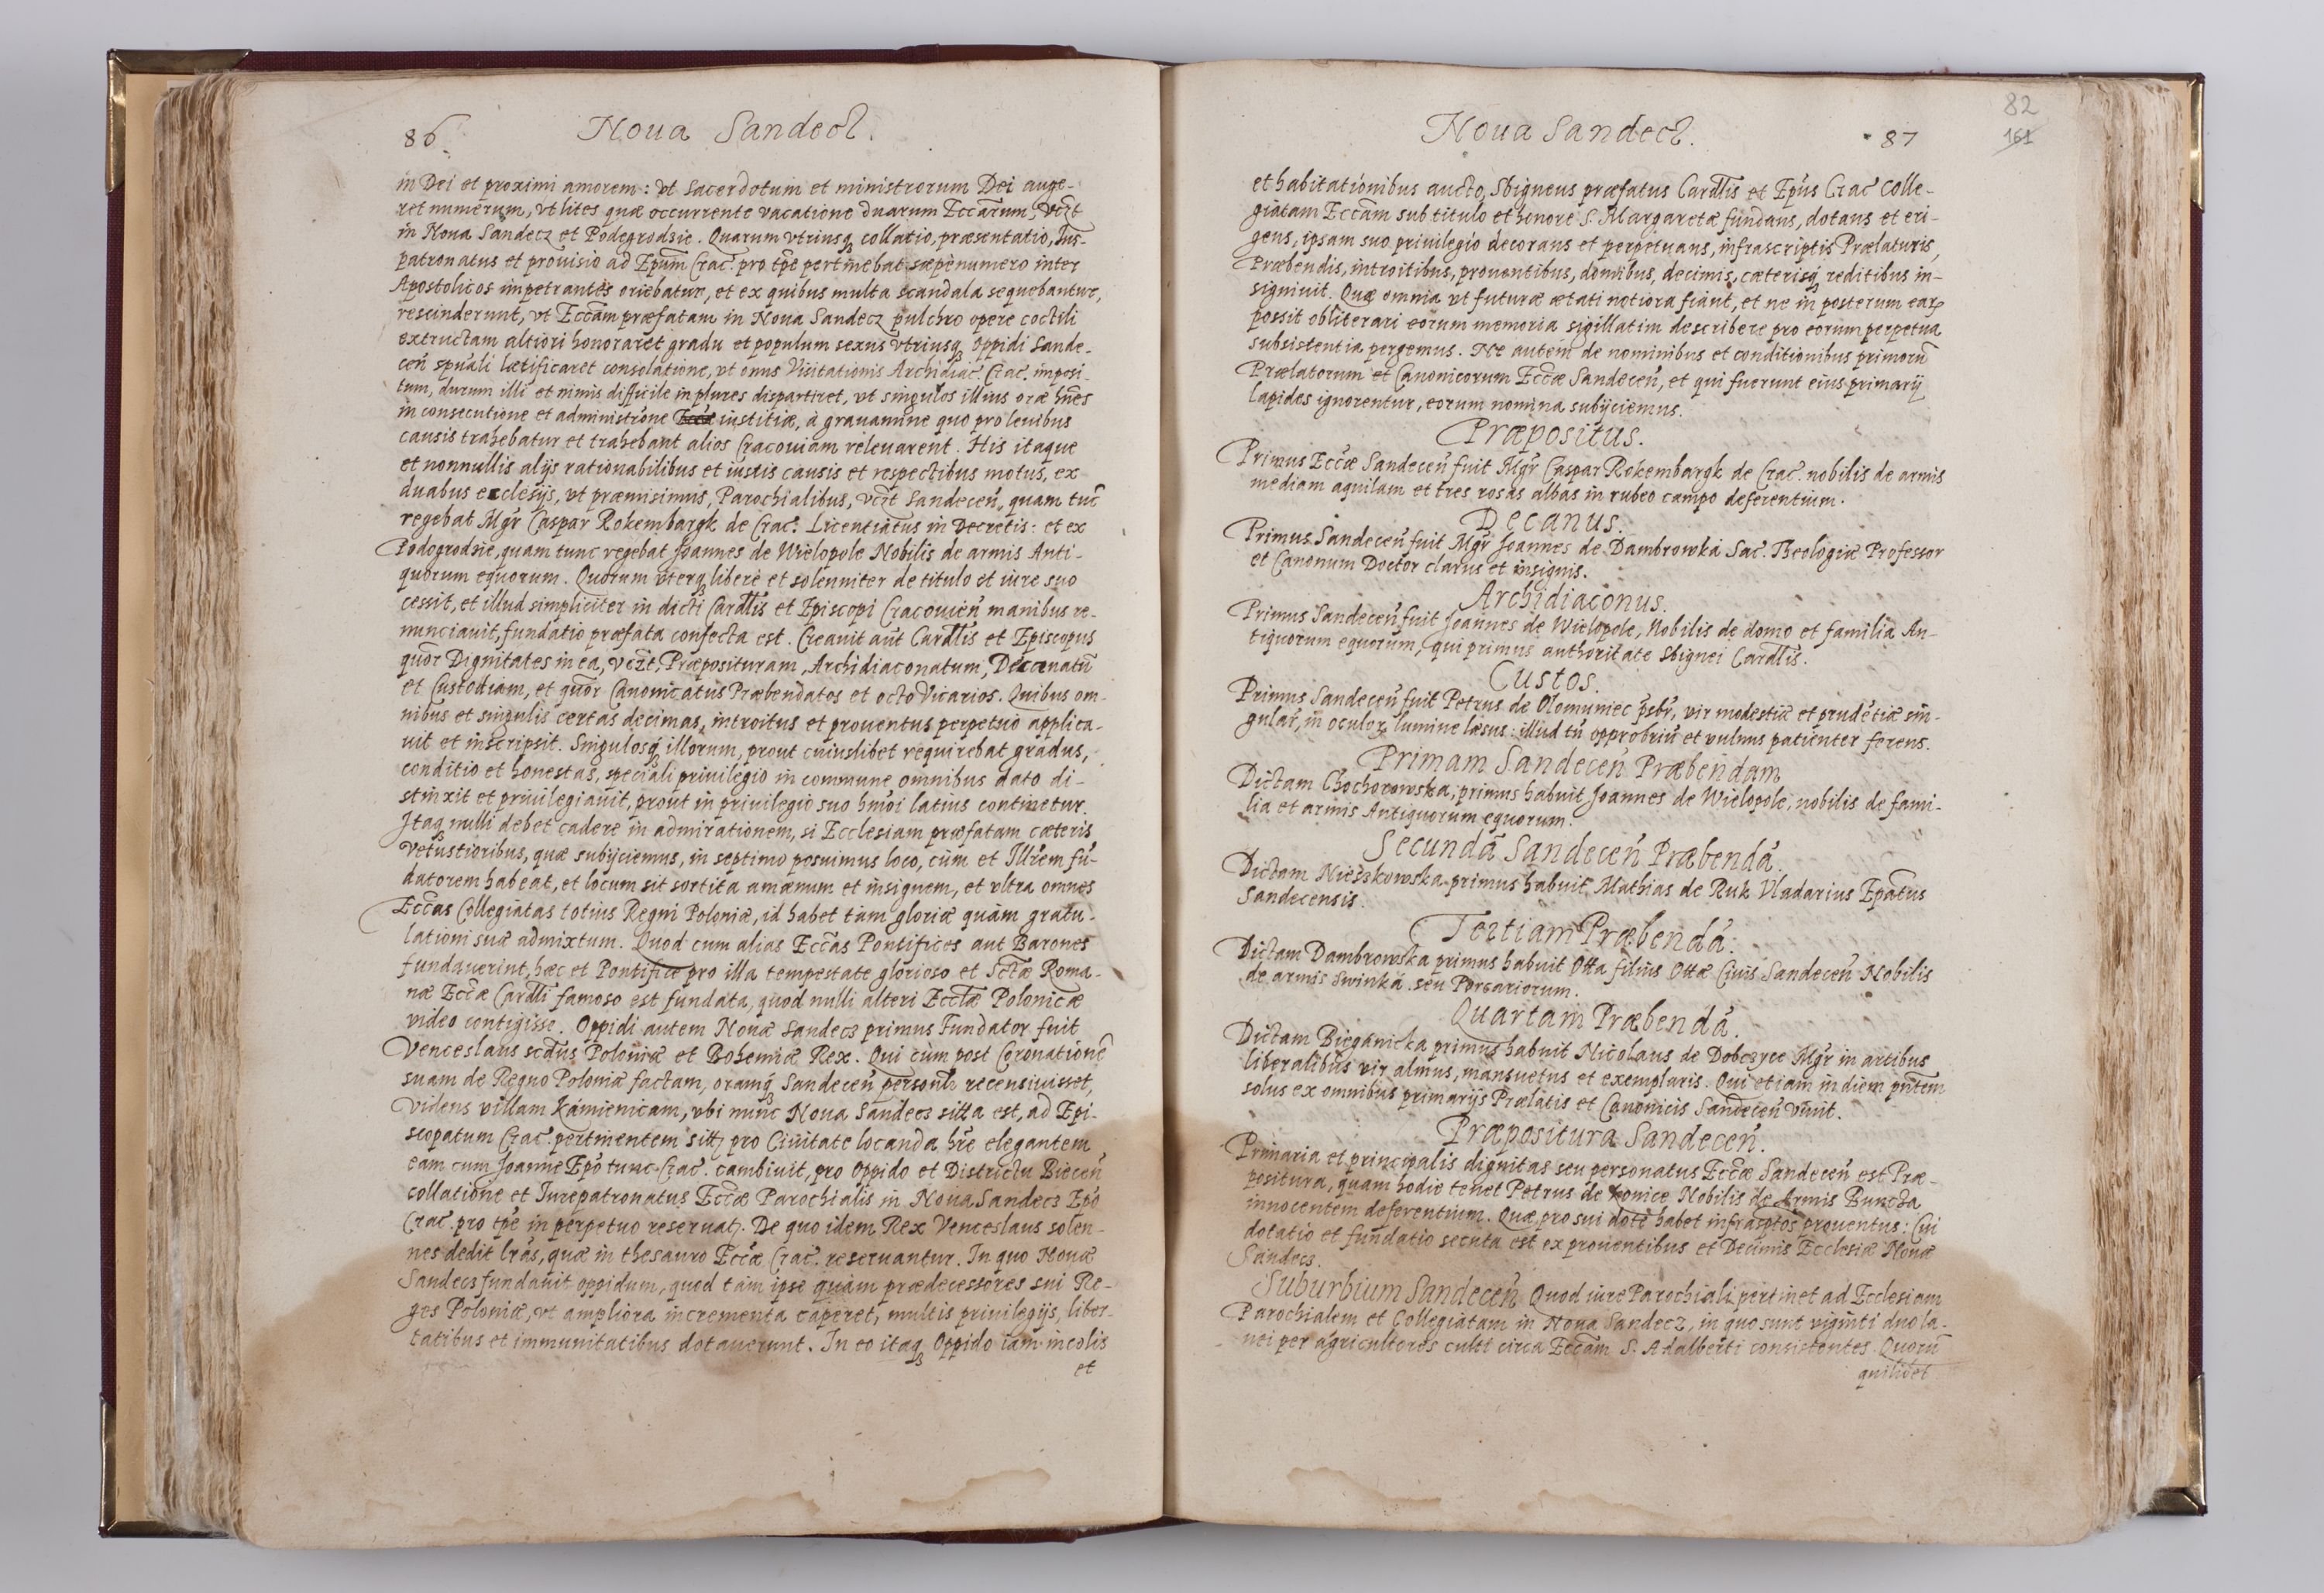 86
Noua Sandecz.
in Dei et proximi amorem: vt sacerdotum et ministrorum Dei auge-
ret numerum, vt lites quæ occurrente vacatione duarum Eccarum, vczt
in Noua Sandecz et Podegrodzie. Quarum vtriusq collatio, præsentatio, Ius-
patronatus et prouisio ad Epum Crac. pro tpe pertinebat sæpenumero inter
Apostolicos impetrantes oriebatur, et ex quibus multa scandala sequebantur,
rescinderunt, vt Eccam præfatam in Noua Sandecz pulchro opere coctili
extructam altiori honoraret gradu et populum sexus vtriusq oppidi Sande-
cen spuali lætificaret consolatione, vt onus Visitationis Archidiac Crac. imposi-
tum, durum illi et nimis difficile in plures dispartiret, vt singulos illius oræ hnes
in consecutione et administrone iustitiæ, à grauamine quo pro leuibus
causis trahebatur et trahebant alios Cracouiam releuarent. His itaque
et nonnullis alijs rationabilibus et iustis causis et respectibus motus, ex
duabus ecclesijs, vt præmisimus, Parochialibus, vczt Sandecen, quam tuc
regebat Mgr Caspar Rokembargk de Crac. Licentiatus in Decretis: et ex
Podogrodzie, quam tunc regebat Joannes de Wielopole Nobilis de armis Anti-
quorum equorum. Quorum vterq liberè et solenniter de titulo et iure suo
cessit, et illud simpliciter in dicti Cardlis et Episcopi Cracouien manibus re-
nunciauit, fundatio præfata confecta est. Creauit aut Cardlis et Episcopus
quor Dignitates in ea, vczt, Præposituram, Archidiaconatum, Decanatu
et Custodiam, et quor Canonicatus Præbendatos et octo Vicarios. Quibus om-
nibus et singulis certas decimas, introitus et prouentus perpetuò applica-
uit et inscripsit. Singulosq illorum, prout cuiuslibet requirebat gradus,
conditio et honestas, speciali priuilegio in commune omnibus dato di-
stinxit et priuilegiauit, prout in priuilegio suo hmoi latius continetur.
Itaq nulli debet cadere in admirationem, si Ecclesiam præfatam cæteris
vetustioribus, quæ subijciemus, in septimo posuimus loco, cùm et Illrem fu-
datorem habeat, et locum sit sortita amænum et insignem, et vltra omnes
Eccas Collegiatas totius Regni Poloniæ, id habet tàm gloriæ quàm gratu-
lationi suæ admixtum. Quod cum alias Eccas Pontifices aut Barones
fundauerint, hæc et Pontifice pro illa tempestate glorioso et Sctæ Roma-
næ Eccæ Cardli famoso est fundata, quod nulli alteri Ecclæ Polonicæ
video contigisse. Oppidi autem Nouæ Sandecz primus Fundator fuit
Venceslaus scdus Poloniæ et Bohemiæ Rex. Qui cùm post Coronatione
suam de Regno Poloniæ factam, oramq Sandecen personlr recensiuisset,
videns villam Kamienicam, vbi nunc Noua Sandecz sita est, ad Epi-
scopatum Crac. pertinentem situ pro Ciuitate locanda hre elegantem
eam cum Joanne Epo tunc Crac. cambiuit, pro oppido et Districtu Biecen
collatione et Iurepatronatus Eccæ Parochialis in Noua Sandecz Epo
Crac. pro tpe in perpetuo reseruat. De quo idem Rex Venceslaus solen-
nes dedit lras, quæ in thesauro Eccæ Crac. reseruantur. In quo Nouæ
Sandecz fundauit oppidum, quod tàm ipse quàm prædecessores sui Re-
ges Poloniæ, vt ampliora incrementa caperet, multis priuilegijs, liber-
tatibus et immunitatibus dotauerunt. In eo itaq Oppido iam incolis
et
82
161
Noua Sandecz.
87
et habitationibus aucto, Sbigneus præfatus Cardlis et Epus Crac Colle-
giatam Eccam sub titulo et honore S. Margaretæ fundans, dotans et eri-
gens, ipsam suo priuilegio decorans et perpetuans, infrascriptis Prælaturis,
Præbendis, introitibus, prouentibus, domibus, decimis, cæterisq reditibus in-
signiuit. Quæ omnia vt futuræ ætati notiora fiant, et ne in posterum ear
possit obliterari eorum memoria sigillatim describere pro eorum perpetua
subsistentia pergemus. Ne autem de nominibus et conditionibus primoru
Prælatorum et Canonicorum Eccæ Sandecen, et qui fuerunt eius primarij
lapides ignorentur, eorum nomina subijciemus.
Præpositus.
Primus Eccæ Sandecen fuit Mgr Caspar Rokembargk de Crac. nobilis de armis
mediam aquilam et tres rosas albas in rubeo campo deferentium.
Decanus.
Primus Sandecen fuit Mgr Joannes de Dambrowka Sac. Theologiæ Professor
et Canonum Doctor clarus et insignis.
Archidiaconus.
Primus Sandecen fuit Joannes de Wielopole, Nobilis de domo et familia An-
tiquorum equorum, qui primus authoritate Sbignei Cardlis.
Custos.
Primus Sandecen fuit Petrus de Olomuniec psbr, vir modestiæ et prudetiæ sin-
gular, in oculor lumine læsus: illud tn opprobriu et vulnus patienter ferens.
Primam Sandecen Præbendam
Dictam Chochorowska, primus habuit Joannes de Wielopole, nobilis de fami-
lia et armis Antiquorum equorum.
Secunda Sandecen Præbenda.
Dictam Nieszkowska primus habuit Mathias de Ruk Vladarius Epatus
Sandecensis.
Tertiam Præbenda.
Dictam Dambrowska primus habuit Otta filius Ottæ Ciuis Sandecen Nobilis
de armis Swinka seu Porcariorum.
Quartam Præbenda.
Dictam Bieganicka primus habuit Nicolaus de Dobczyce Mgr in artibus
liberalibus vir almus, mansuetus et exemplaris. Qui etiam in diem pntem
solus ex omnibus primarijs Prælatis et Canonicis Sandecen viuit.
Præpositura Sandecen.
Primaria et principalis dignitas seu personatus Eccæ Sandecen est Præ-
positura, quam hodie tenet Petrus de Konice Nobilis de Armis Buncza
innocentem deferentium. Quæ pro sui dote habet infrasptos prouentus: Cui
dotatio et fundatio secuta est ex prouentibus et Decimis Ecclesiæ Nouæ
Sandecz.
Suburbium Sandecen Quod iure Parochiali pertinet ad Ecclesiam
Parochialem et Collegiatam in Noua Sandecz, in quo sunt viginti duo la-
nei per agricultores culti circa Eccam S. Adalberti consistentes. Quoru
quilibet